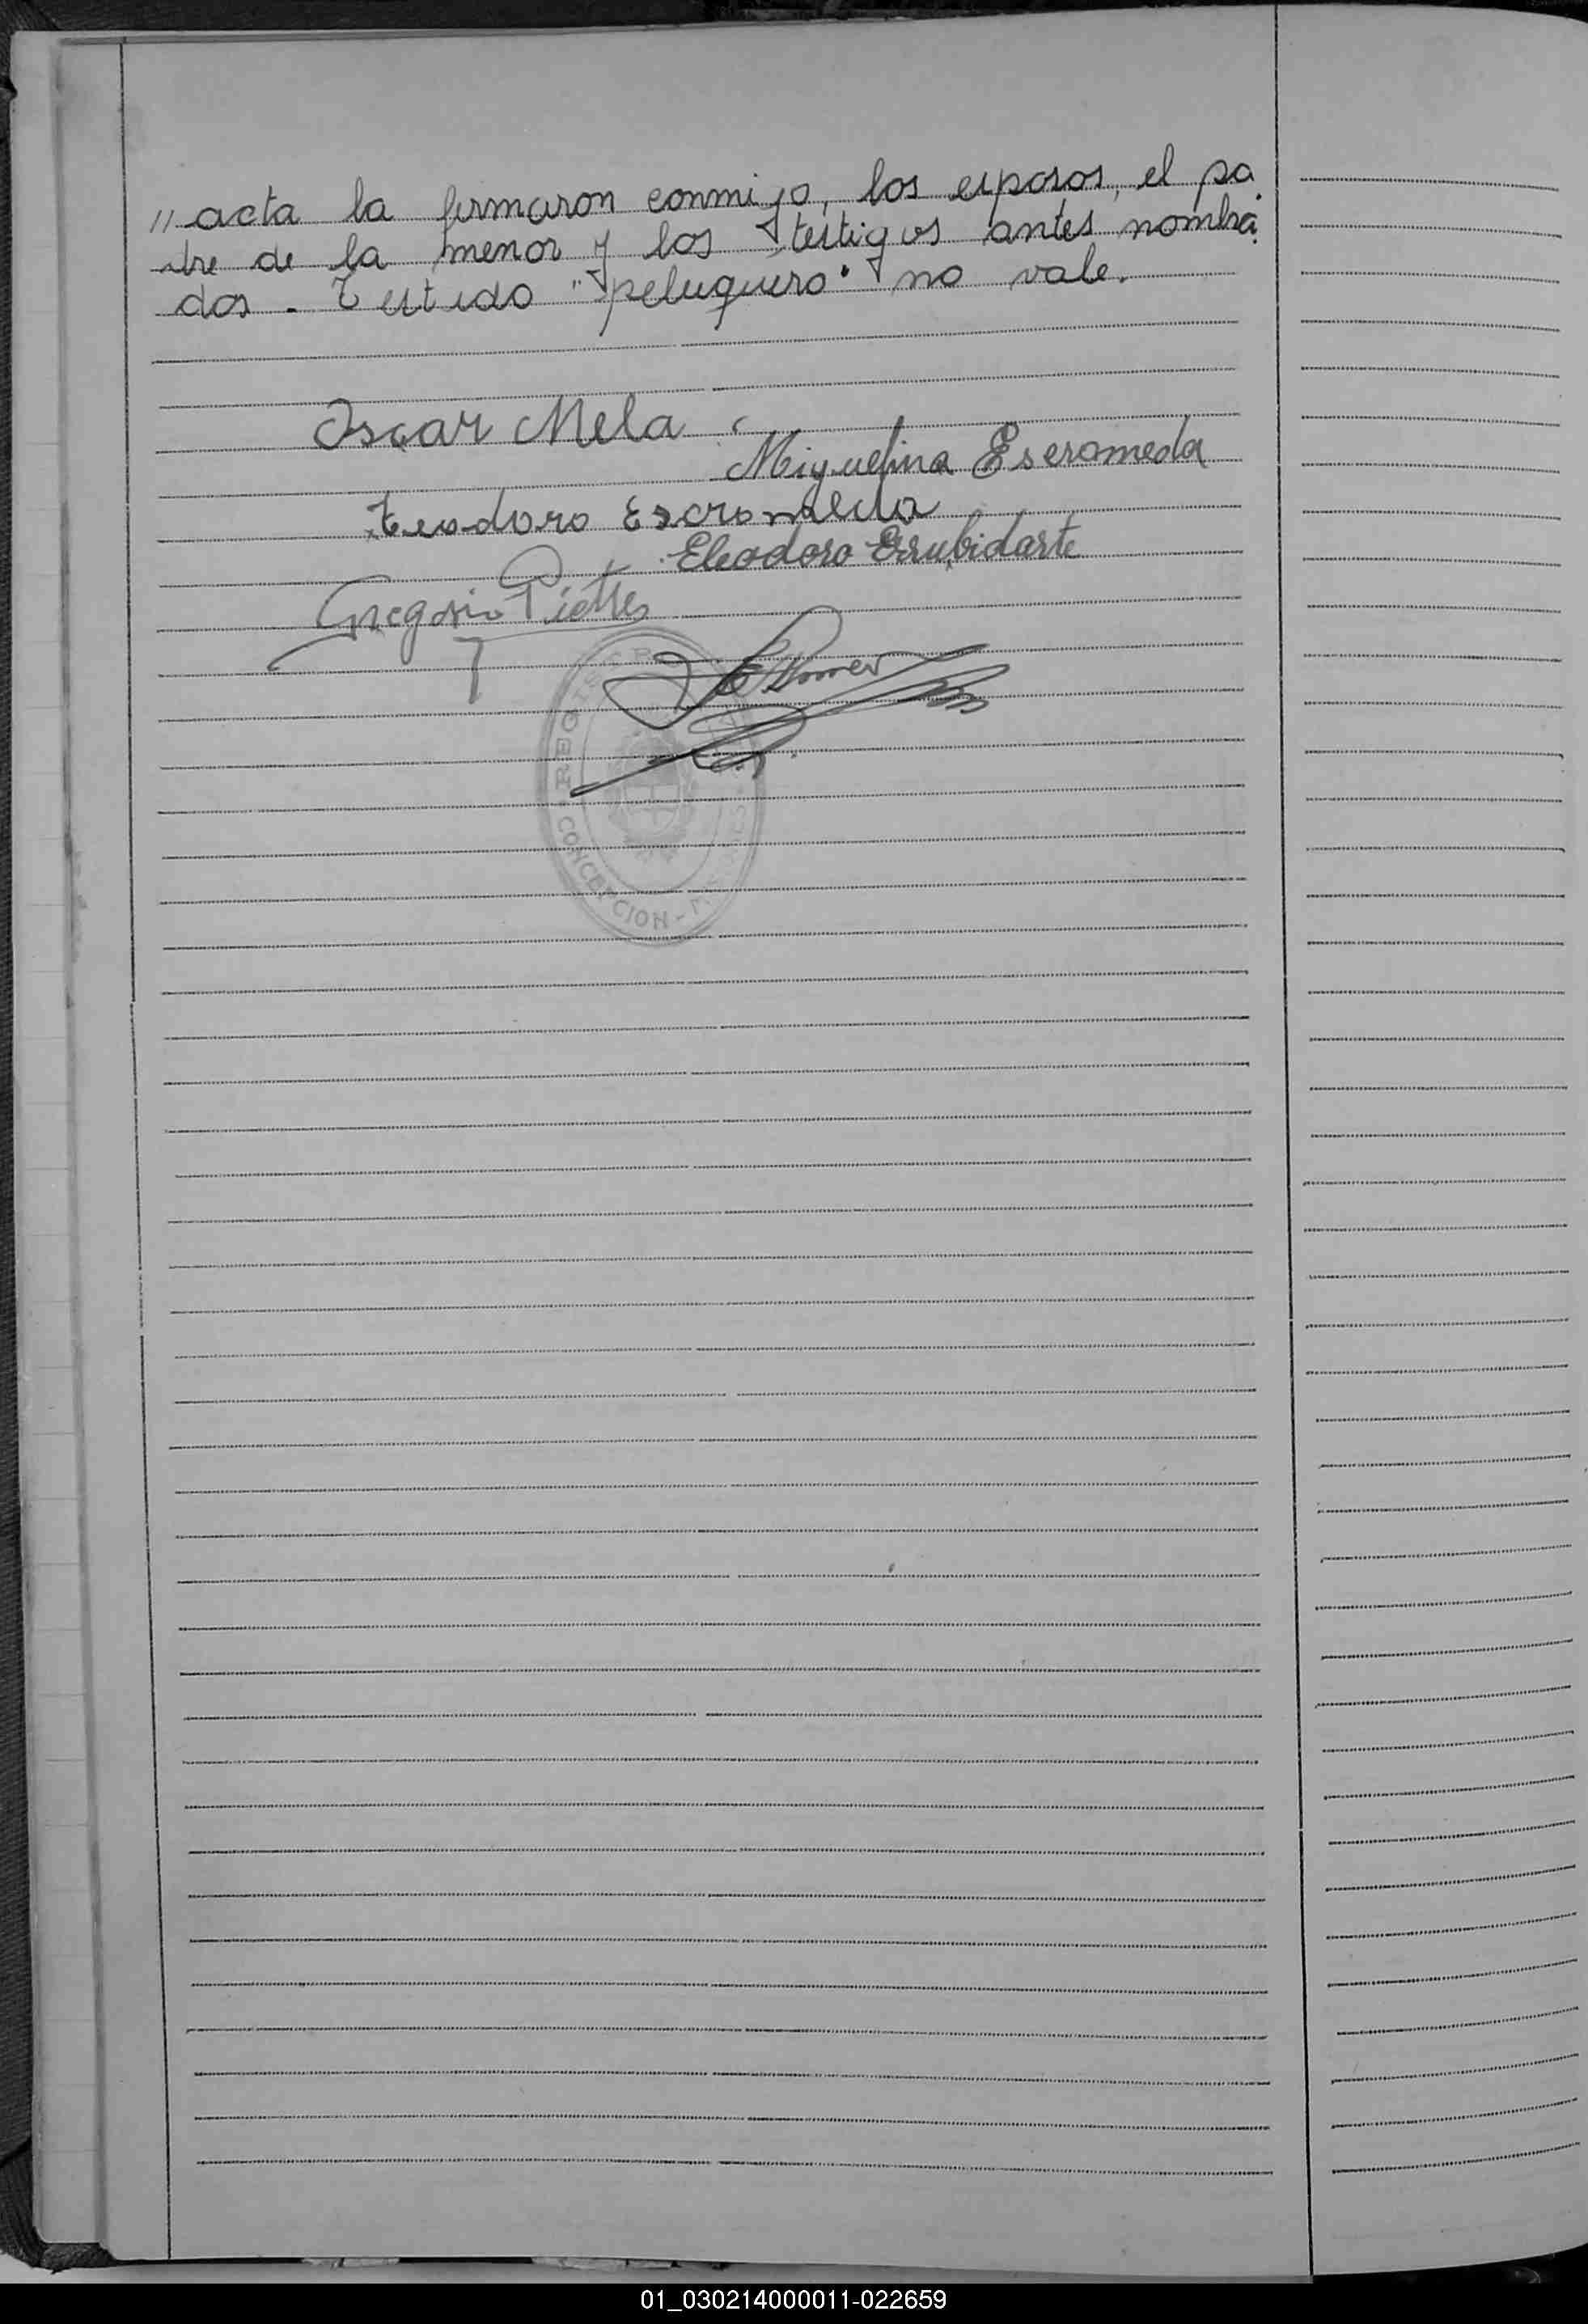 // acta la firmaron conmigo, los esposos, el pa
dre de la menor y los testigos antes nombra
dos. Testado "peluquero" no vale.
Oscar Mela
Miguelina Escromeda
Teodoro Escromeda
Eleodoro Errubidarte
Gregorio
REGISTRO
CONCEPCION - MISIONES
01_030214000011-022659